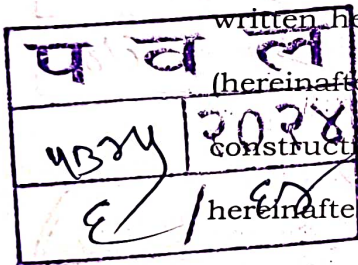 written he
प व ल
(hereinafte
२०२४
constructi
६ /
hereinafte